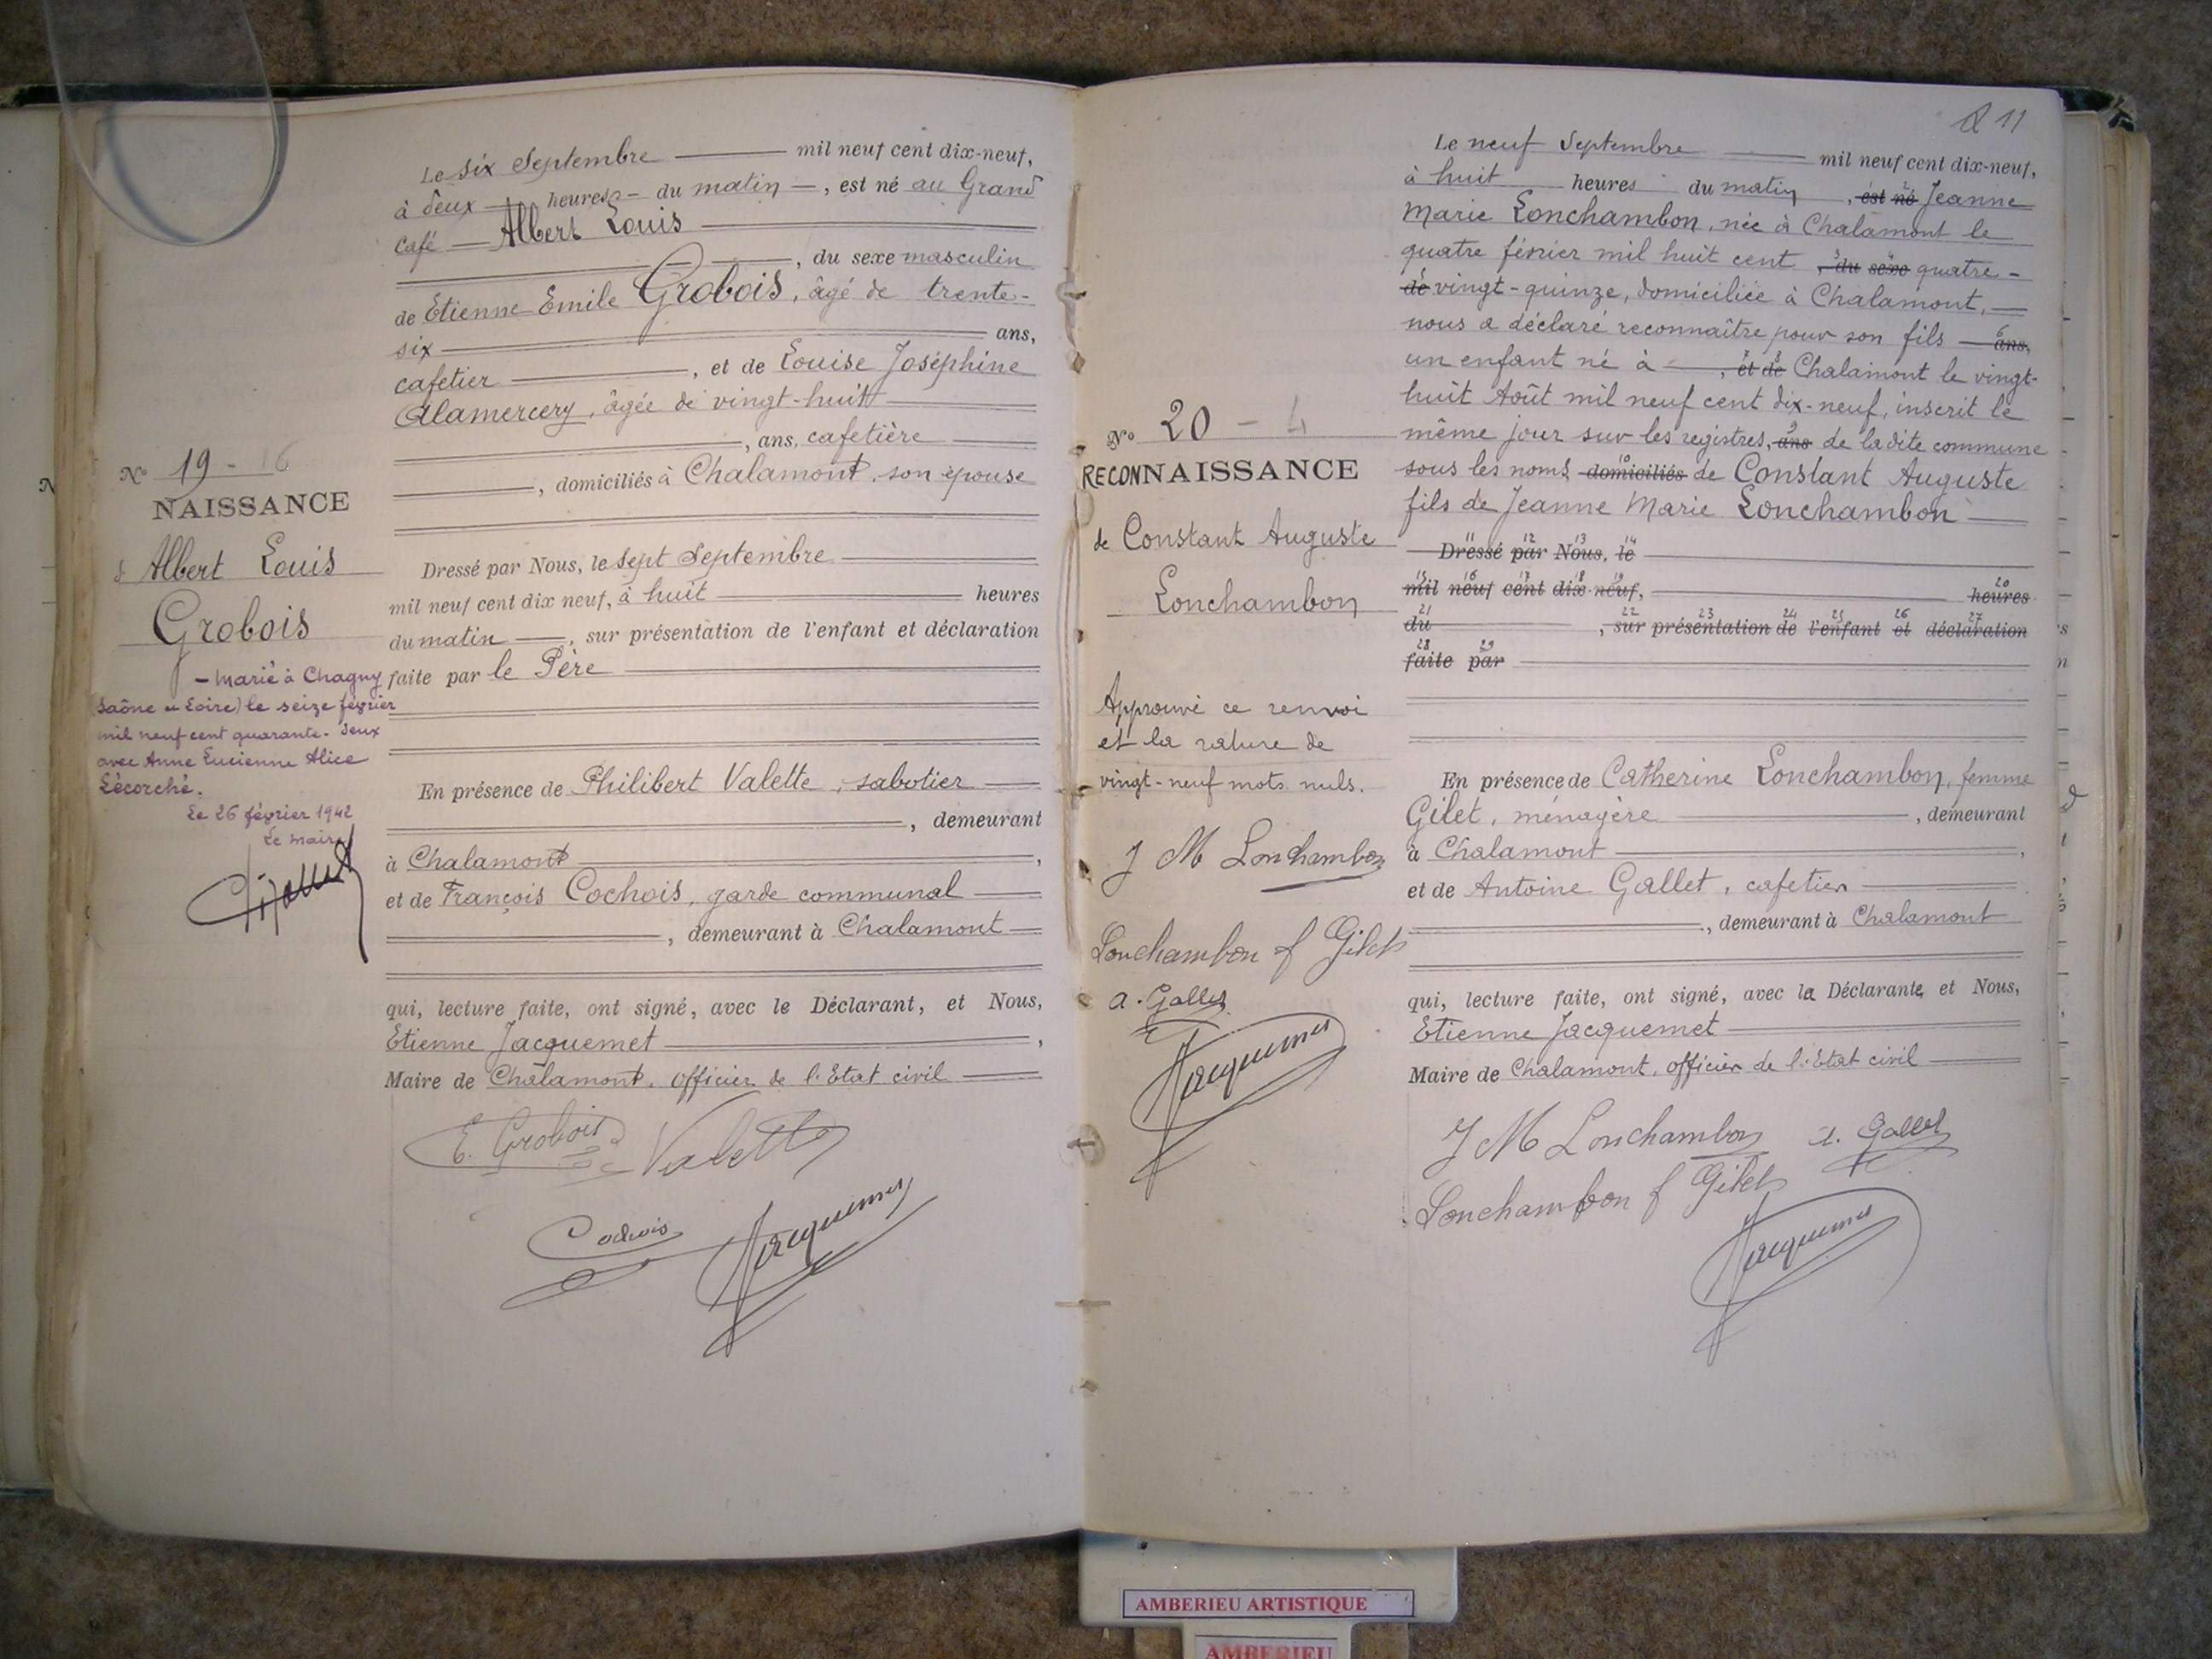 Le six Septembre mil neuf cent dix-neuf,
à deux heures du matin, est né au Grand
Café Albert Louis
, du sexe masculin
de Etienne Emile Grobois, âgé de trente-
six ans,
cafetier, et de Louise Joséphine
Alamercery, âgée de vingt-huit
, ans, cafetière
, domiciliés à Chalamont, son épouse
N° 19 - 16
NAISSANCE
d Albert Louis
Grobois
- Marié à Chagny
(Saône et Loire) le seize février
mil neuf cent quarante-deux
avec Anne Lucienne Alice
Lécorché.
Le 26 février 1942
Le maire
Dressé par Nous, le sept Septembre
mil neuf cent dix neuf, à huit heures
du matin, sur présentation de l'enfant et déclaration
faite par le Père
En présence de Philibert Valette, sabotier
, demeurant
à Chalamont,
et de François Cochois, garde communal
, demeurant à Chalamont
qui, lecture faite, ont signé, avec le Déclarant, et Nous,
Etienne Jacquemet,
Maire de Chalamont, officier de l'Etat civil
E. Grobois Valette
Cochois Jacquemet
11
Le neuf Septembre mil neuf cent dix-neuf,
à huit heures du matin, est né Jeanne
Marie Lonchambon, née à Chalamont le
quatre février mil huit cent , du sexe quatre-
de vingt-quinze, domiciliée à Chalamont,
nous a déclaré reconnaître pour son fils ans,
un enfant né à , et de Chalamont le vingt-
huit Août mil neuf cent dix-neuf, inscrit le
même jour sur les registres, ans de ladite commune
sous les noms domiciliés de Constant Auguste
fils de Jeanne Marie Lonchambon
N° 20 - 4
RECONNAISSANCE
de Constant Auguste
Lonchambon
Dressé par Nous, le
mil neuf cent dix-neuf, heures
du , sur présentation de l'enfant et déclaration
faite par
Approuvé ce renvoi
et la rature de
vingt-neuf mots nuls.
J M Lonchambon
Lonchambon f Gilet
A. Gallet
Jacquemet
En présence de Catherine Lonchambon, femme
Gilet, ménagère, demeurant
à Chalamont,
et de Antoine Gallet, cafetier
, demeurant à Chalamont
qui, lecture faite, ont signé, avec la Déclarante, et Nous,
Etienne Jacquemet
Maire de Chalamont, officier de l'Etat civil
J M Lonchambon A. Gallet
Lonchambon f Gilet
Jacquemet
AMBERIEU ARTISTIQUE
AMBERIEU